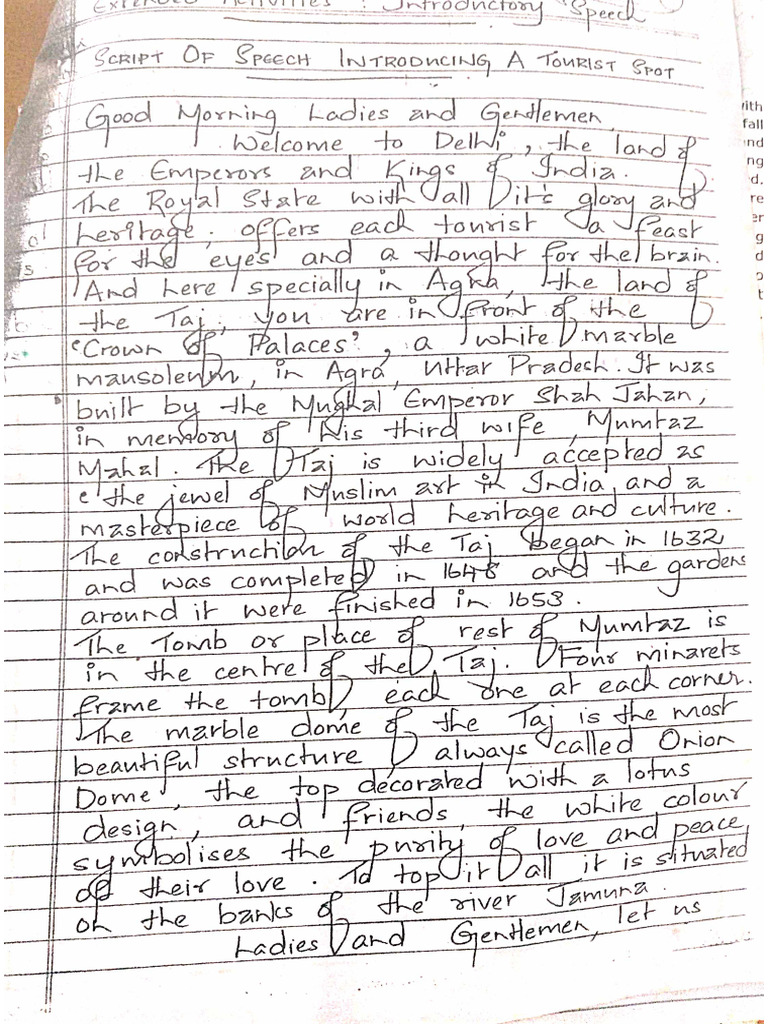 Extended Activities : Introductory Speech
SCRIPT OF SPEECH INTRODUCING A TOURIST SPOT
Good Morning Ladies and Gentlemen,
Welcome to Delhi, the land of
the Emperors and Kings of India.
The Royal State with all it's glory and
heritage, offers each tourist a feast
for the eyes and a thought for the brain.
And here specially in Agra, the land of
the Taj, you are in front of the
'Crown of Palaces', a white marble
mausoleum, in Agra, Uttar Pradesh. It was
built by the Mughal Emperor Shah Jahan,
in memory of his third wife, Mumtaz
Mahal. The Taj is widely accepted as
the jewel of Muslim art in India, and a
masterpiece of world heritage and culture.
The construction of the Taj began in 1632
and was completed in 1648 and the gardens
around it were finished in 1653.
The Tomb or place of rest of Mumtaz is
in the centre of the Taj. Four minarets
frame the tomb, each one at each corner.
The marble dome of the Taj is the most
beautiful structure, always called Onion
Dome, the top decorated with a lotus
design, and friends, the white colour
symbolises the purity of love and peace
of their love. To top it all it is situated
on the banks of the river Jamuna.
Ladies and Gentlemen, let us
ith
fall
nd
ng
d.
re
er
g
d
t